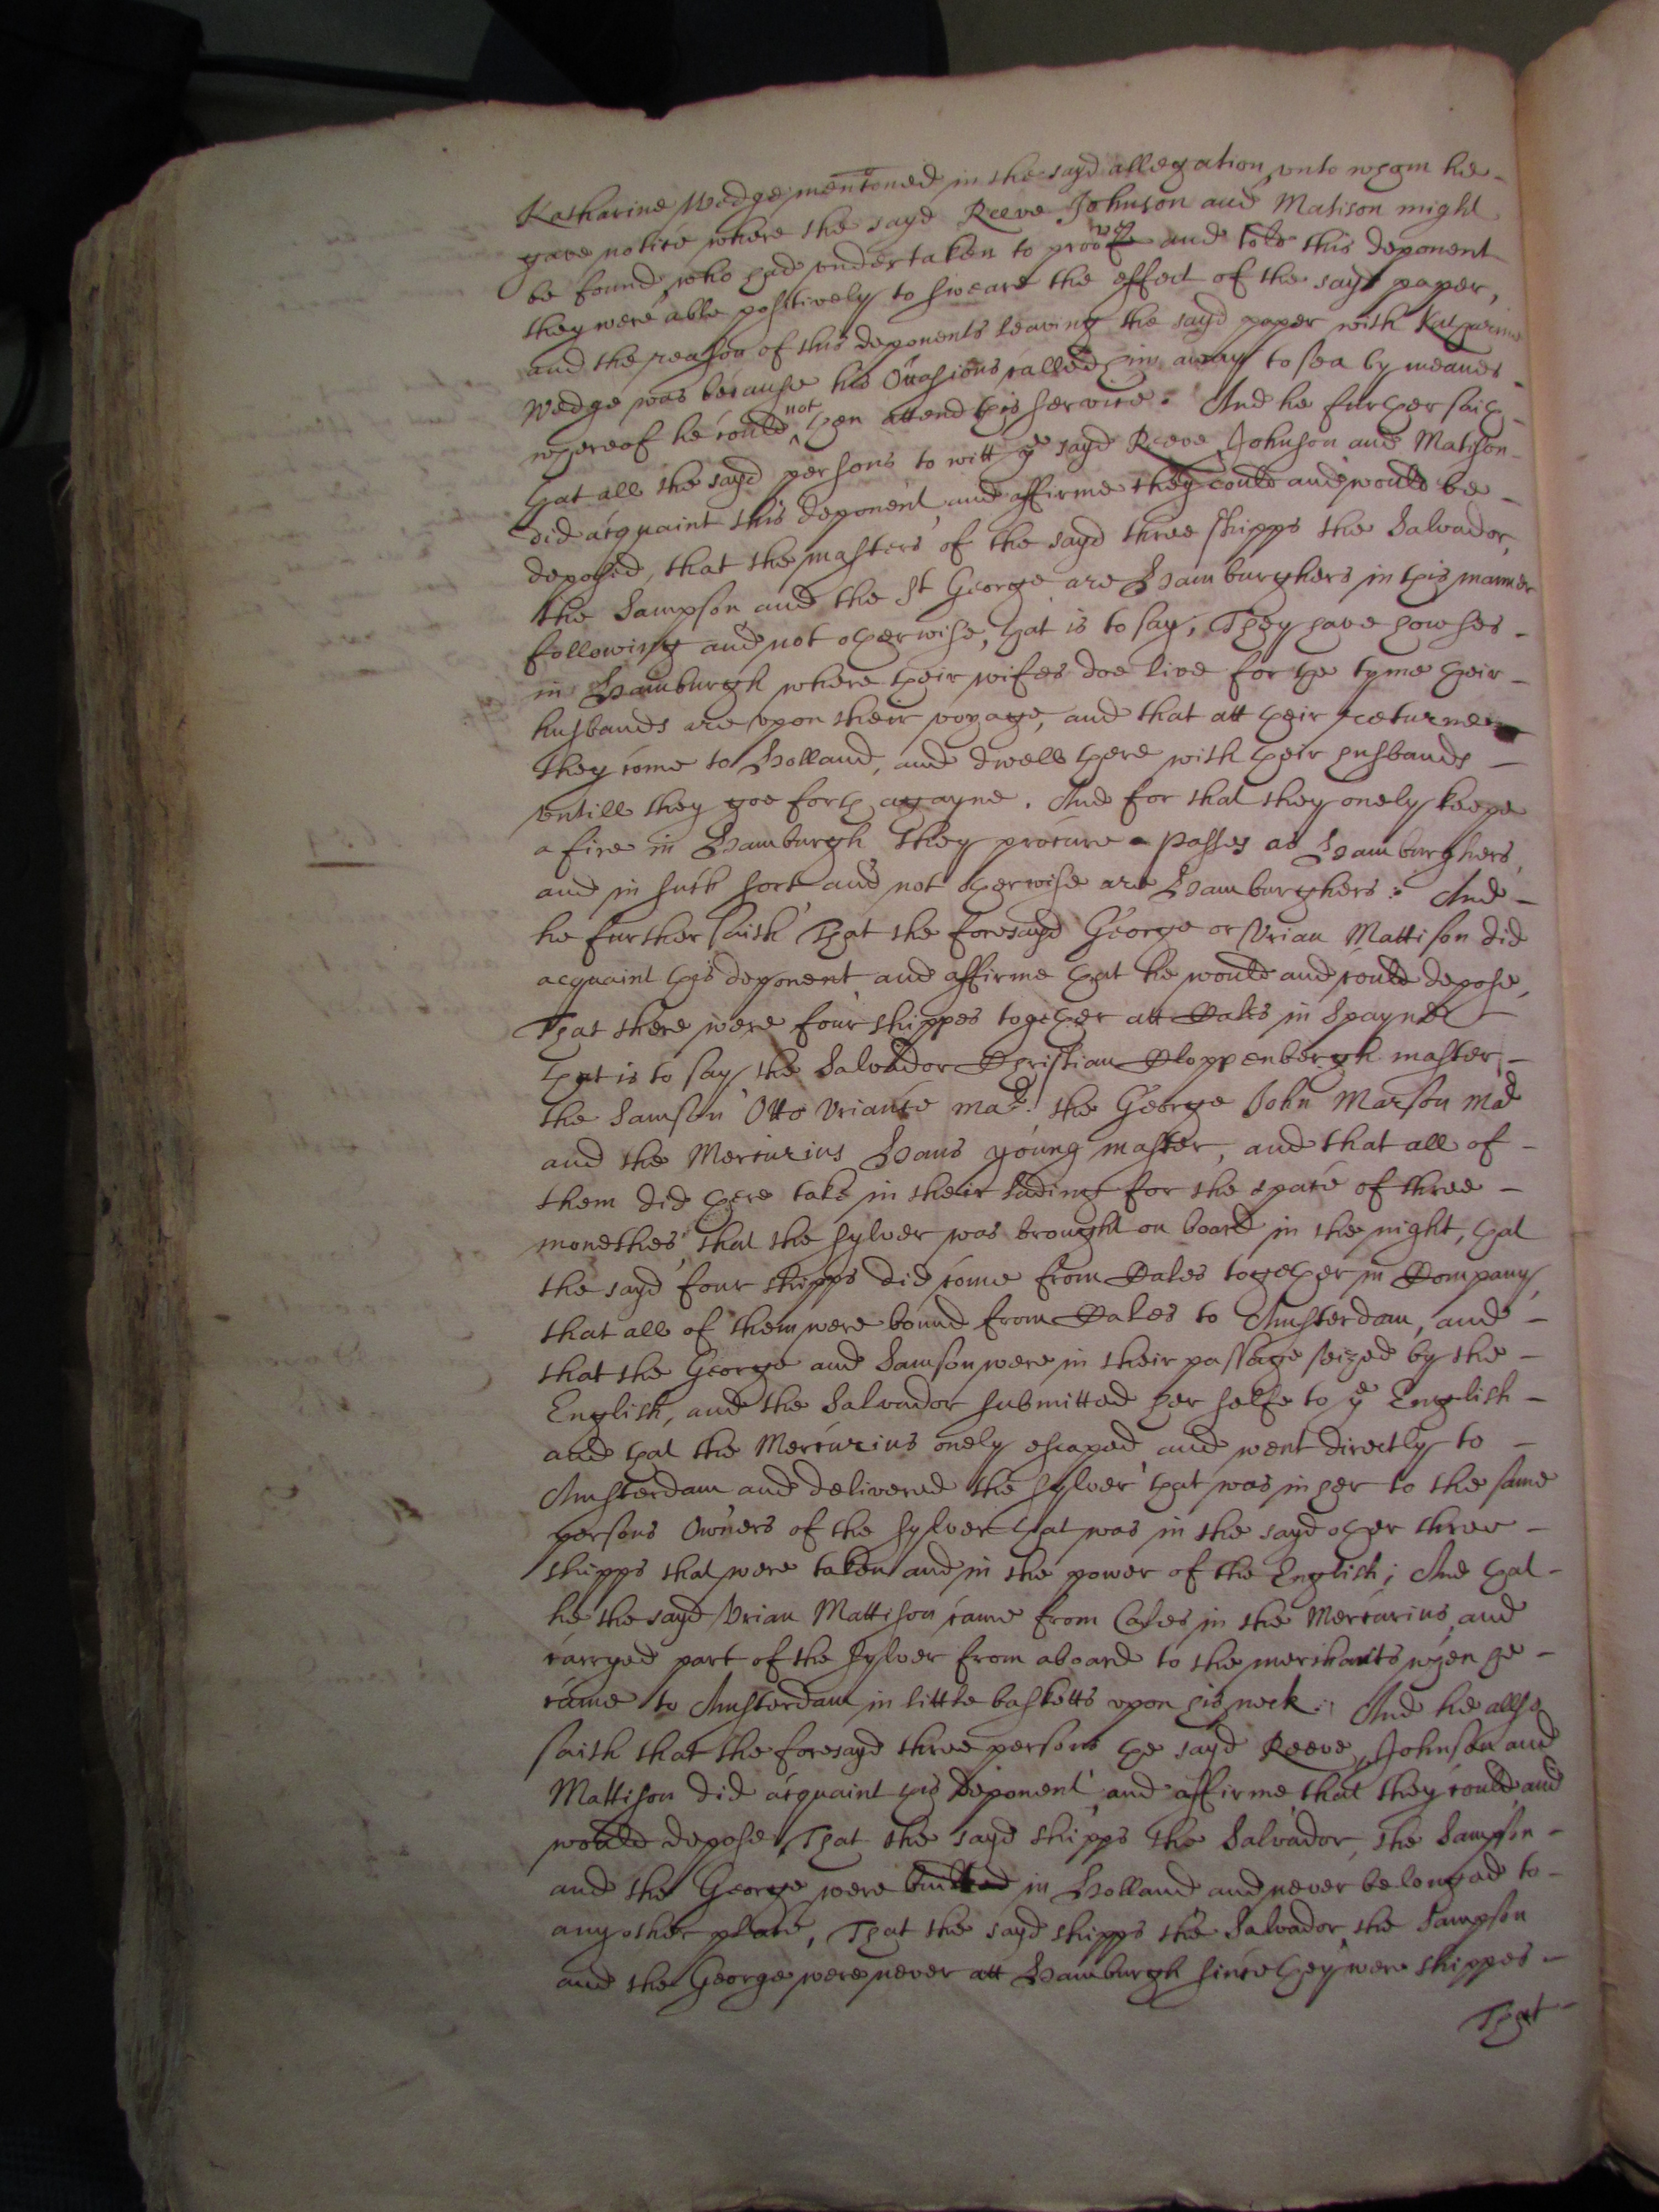 Katharine Wedge mentioned in the sayd allegation, unto whom he -
gave notice where the sayd Reeve Johnson and Matison might
be found, who had undertaken to proove and told this deponent
they were able positively to sweare the effect of the sayd paper,
and the reason of this deponents leaving the sayd paper with Katharine
Wedge was because his Occasions called him away to sea by meanes -
whereof he could not then attend this service. And he further saith -
that all the sayd persons to witt ye sayd Reeve Johnson and Matison -
did acquaint this deponent and affirme they could and would be -
deposed, that the masters of the sayd three shipps the Salvador,
the Sampson and the St George are Hamburghers in this manner
following and not otherwise, that is to say, They have howses -
in Hamburgh where their wifes doe live for the tyme their -
husbands are upon their voyage, and that att their returne
they come to Holland, and dwell there with their husbands -
untill they goe forth agayne. And for that they onely keepe
a fire in Hamburgh they procure Passes as Hamburghers,
and in such sort and not otherwise are Hamburghers: And -
he further saith That the foresayd George or Urian Mattison did
acquaint this deponent and affirme that he would and could depose,
That there were four shippes together att Cales in Spayne -
that is to say, the Salvador Christian Cloppenbergh master, -
the Samson Otto Uriance mar. the George John Marson mar
and the Mercurius Hans young master, and that all of -
them did there take in their lading for the space of three -
monethes that the sylver was brought on board in the night, that
the sayd four shipps did come from Cales together in Company,
that all of them were bound from Cales to Amsterdam, and -
that the George and Samson were in their passage seized by the -
English, and the Salvador submitted her selfe to ye English -
and that the Mercurius onely escaped and went directly to -
Amsterdam and delivered the sylver that was in her to the same
persons Owners of the sylver that was in the sayd other three -
shipps that were taken and in the power of the English; And that -
he the sayd Urian Mattison came from Cales in the Mercurius, and
carryed part of the sylver from aboard to the merchants when he -
came to Amsterdam in little basketts upon his neck: And he allso
saith that the foresayd three persons the sayd Reeve, Johnson and
Mattison did acquaint this deponent and affirme that they could and
would depose, That the sayd shipps the Salvador, the Sampson -
and the George were in Holland and never belonged to -
any other place, That the sayd shipps the Salvador, the Sampson
and the George were never att Hamburgh since they were shippes -
That -